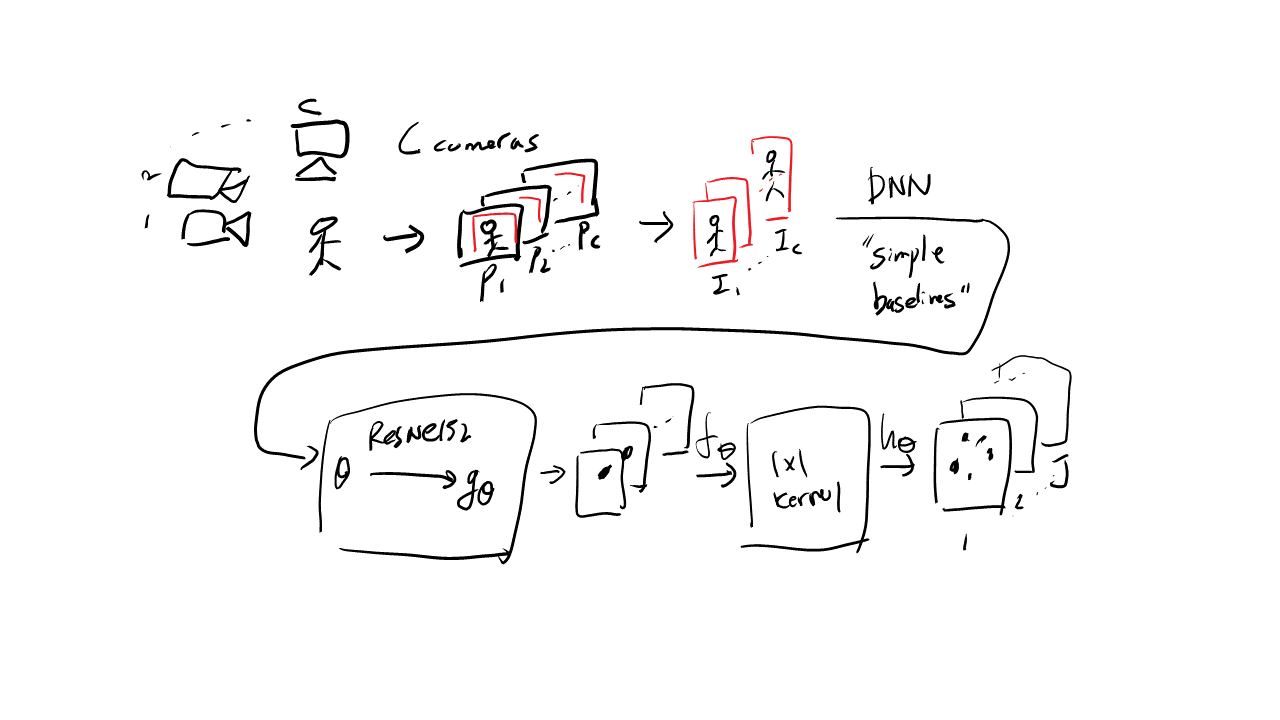 C
C cameras
2
1
P1
P2
Pc
I1
Ic
DNN
"simple
baselines"
ResNet152
θ
gθ
fθ
1x1
kernel
hθ
1
2
J